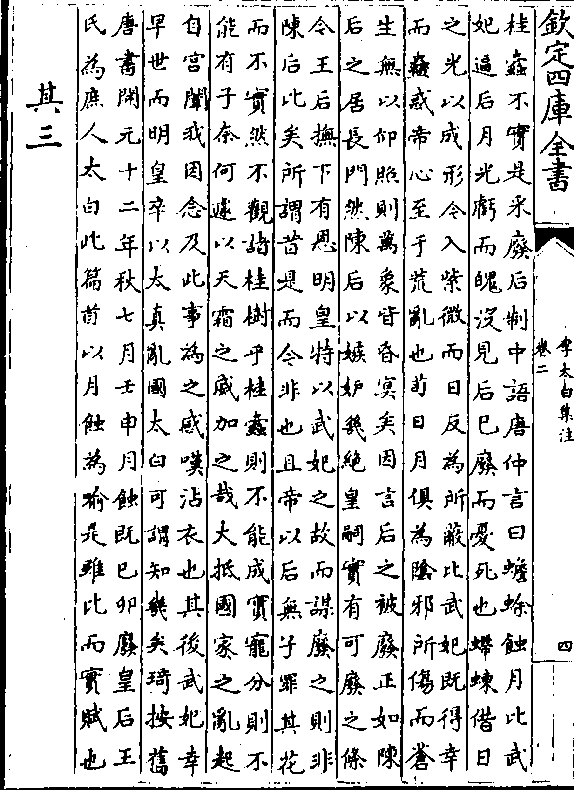 欽定四庫全書
李太白集注
卷二
四
桂蠧不實是采廢后制中語唐仲言曰蟾蜍蝕月比武
妃逼后月光虧而魄沒見后已廢而憂死也螮蝀借日
之光以成形令入紫微而日反為所蔽比武妃既得幸
而蠱惑帝心至于荒亂也前日月俱為陰邪所傷而蒼
生無以仰照則萬象皆昏冥矣因言后之被廢正如陳
后之居長門然陳后以嫉妒幾絶皇嗣實有可廢之條
令王后撫下有恩明皇特以武妃之故而謀廢之則非
陳后比矣所謂昔是而今非也且帝以后無子罪其花
而不實然不觀諸桂樹乎桂蠧則不能成實寵分則不
能有子奈何遽以天霜之威加之哉大抵國家之亂起
自宫闈我因念及此事為之感嘆沾衣也其後武妃幸
早世而明皇卒以太真亂國太白可謂知幾矣琦按舊
唐書開元十二年秋七月壬申月蝕既巳卯廢皇后王
氏為庶人太白此篇首以月蝕為喻是雖比而實賦也
其三